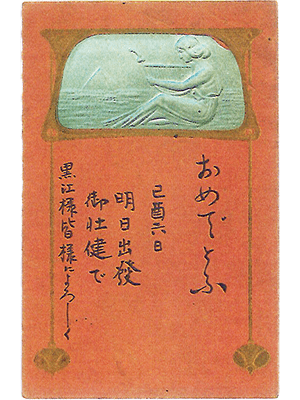 おめでとふ
己酉六日
明日出發
御壮健で
黒江様皆様によろしく